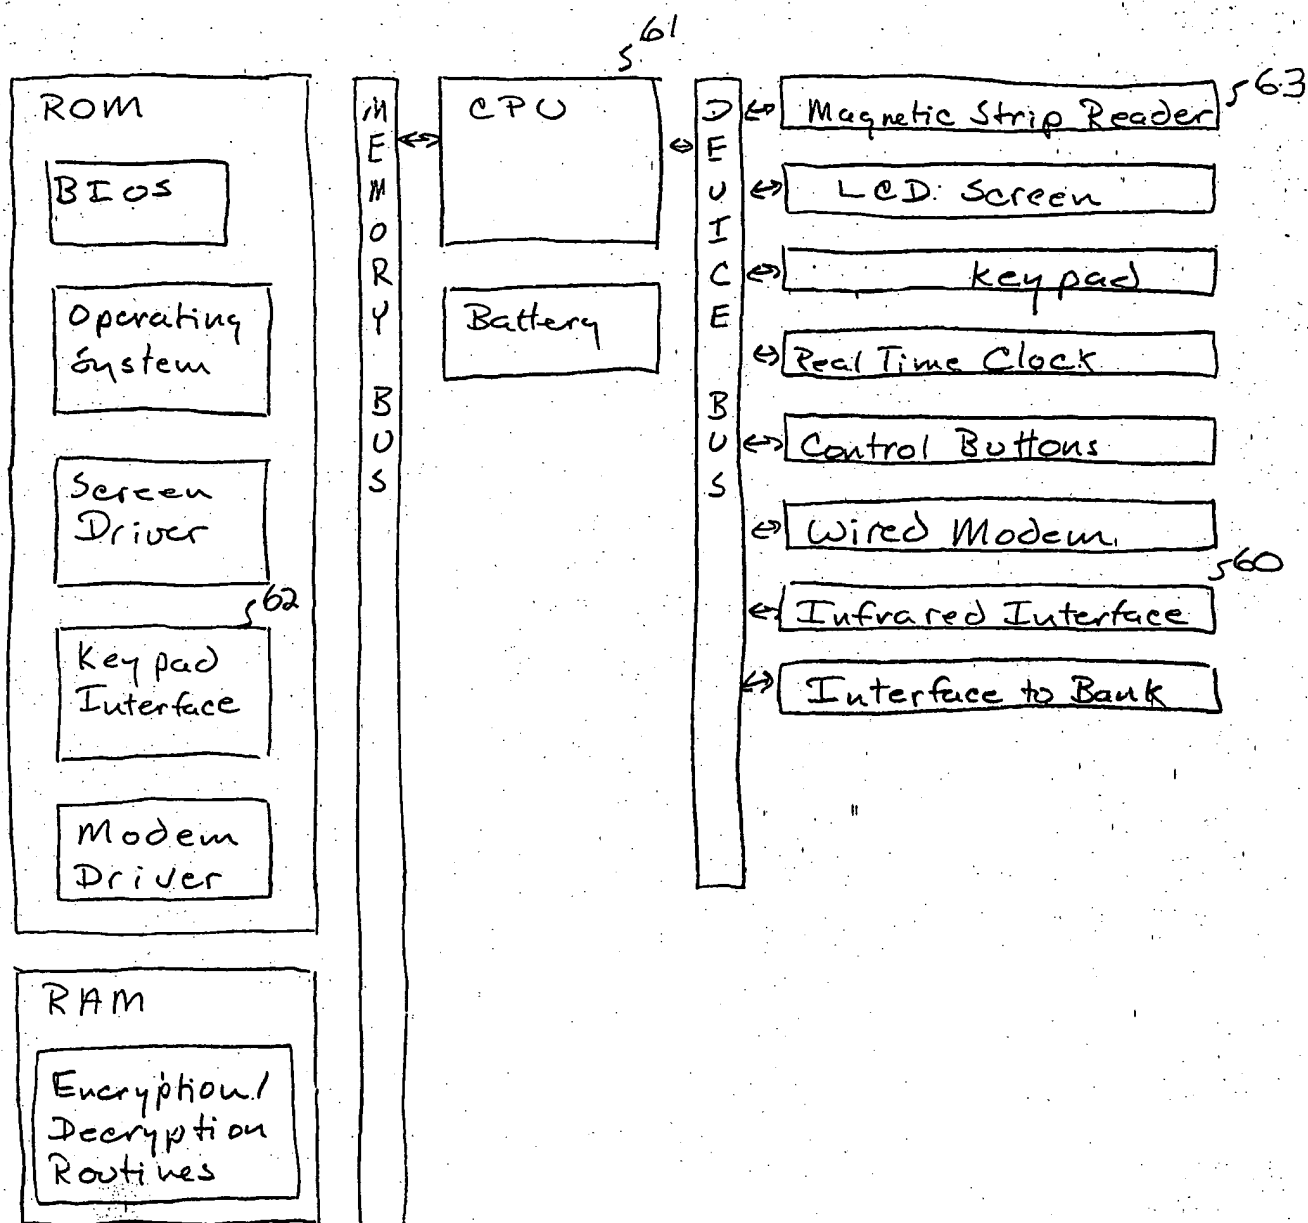 61
ROM
BIOS
Operating
System
Screen
Driver
62
Keypad
Interface
Modem
Driver
RAM
Encryption/
Decryption
Routines
MEMORY BUS
CPU
Battery
DEVICE BUS
63
Magnetic Strip Reader
LCD Screen
Keypad
Real Time Clock
Control Buttons
Wired Modem
60
Infrared Interface
Interface to Bank